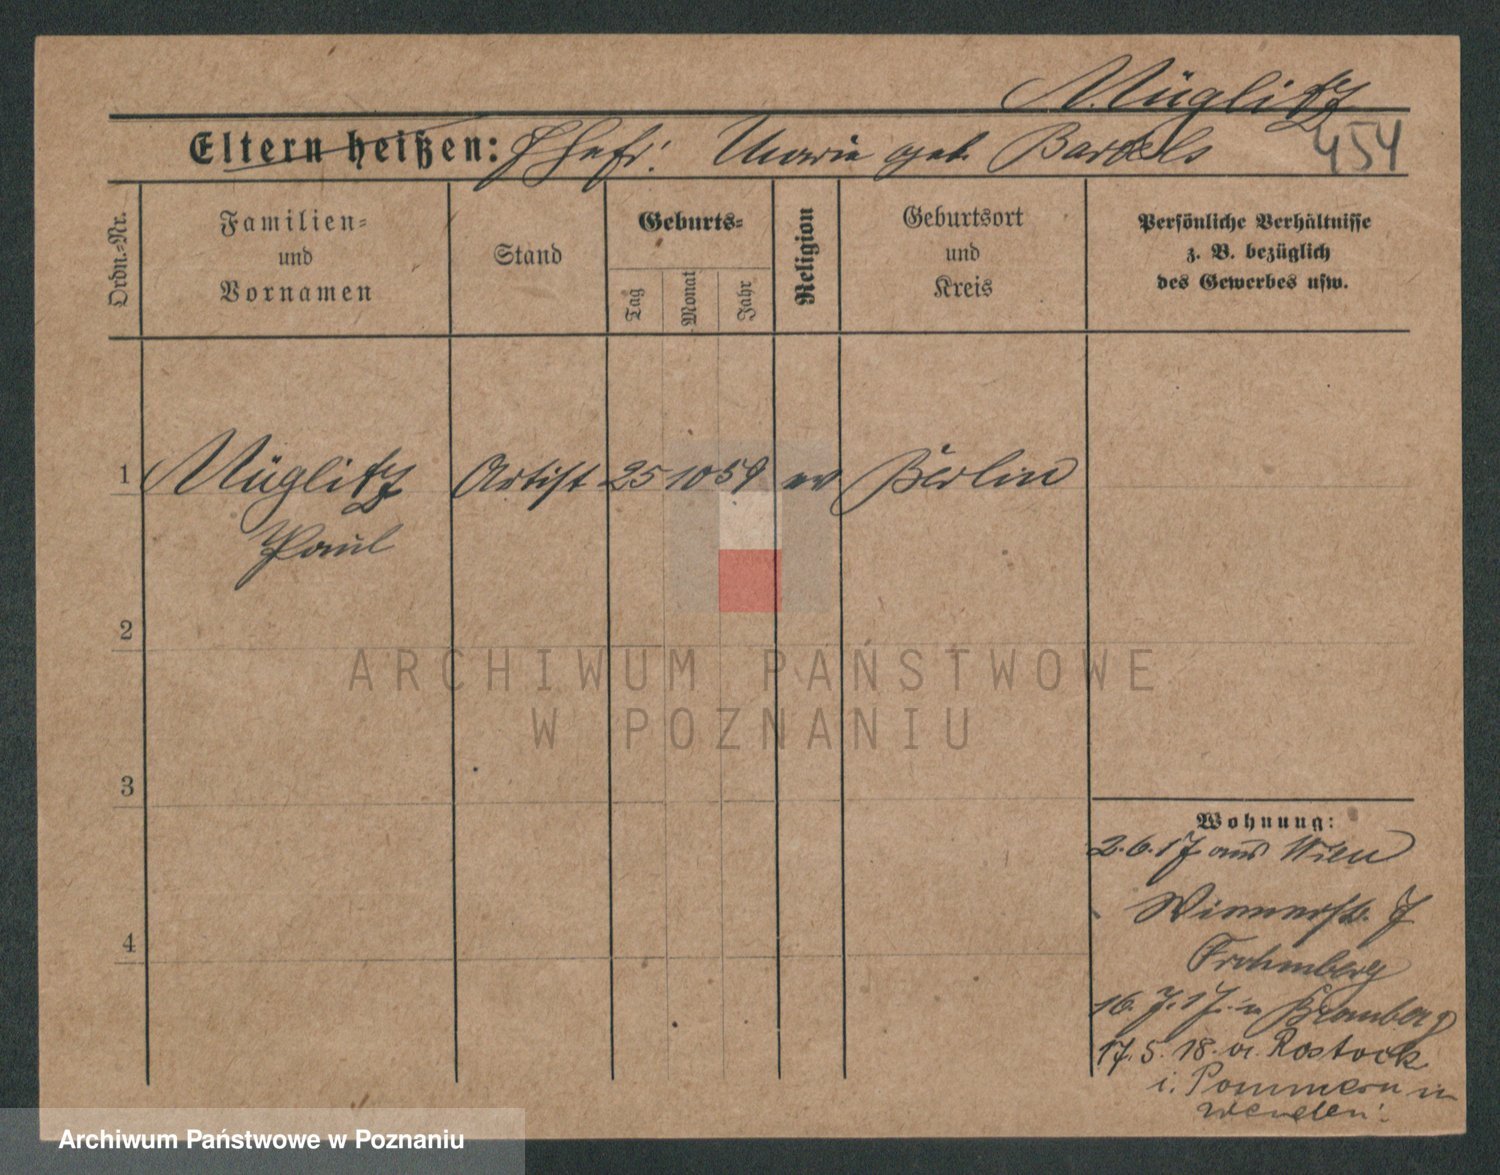 Müglitz
454
Eltern heißen: Ehefr: Marie geb. Bartels
Ordn.=Nr.
Familien=
und
Vornamen
Stand
Geburts=
Tag
Monat
Jahr
Religion
Geburtsort
und
Kreis
Persönliche Verhältnisse
z. B. bezüglich
des Gewerbes usw.
1 Müglitz Artist 25 10 59 ev Berlin
Paul
2
3
4
Wohnung:
2.6.17 aus Wien
7
Frohmberg
16.7.17. n Bromberg
17.5.18. v. Rostock
i. Pommern n
ARCHIWUM PAŃSTWOWE
W POZNANIU
Archiwum Państwowe w Poznaniu